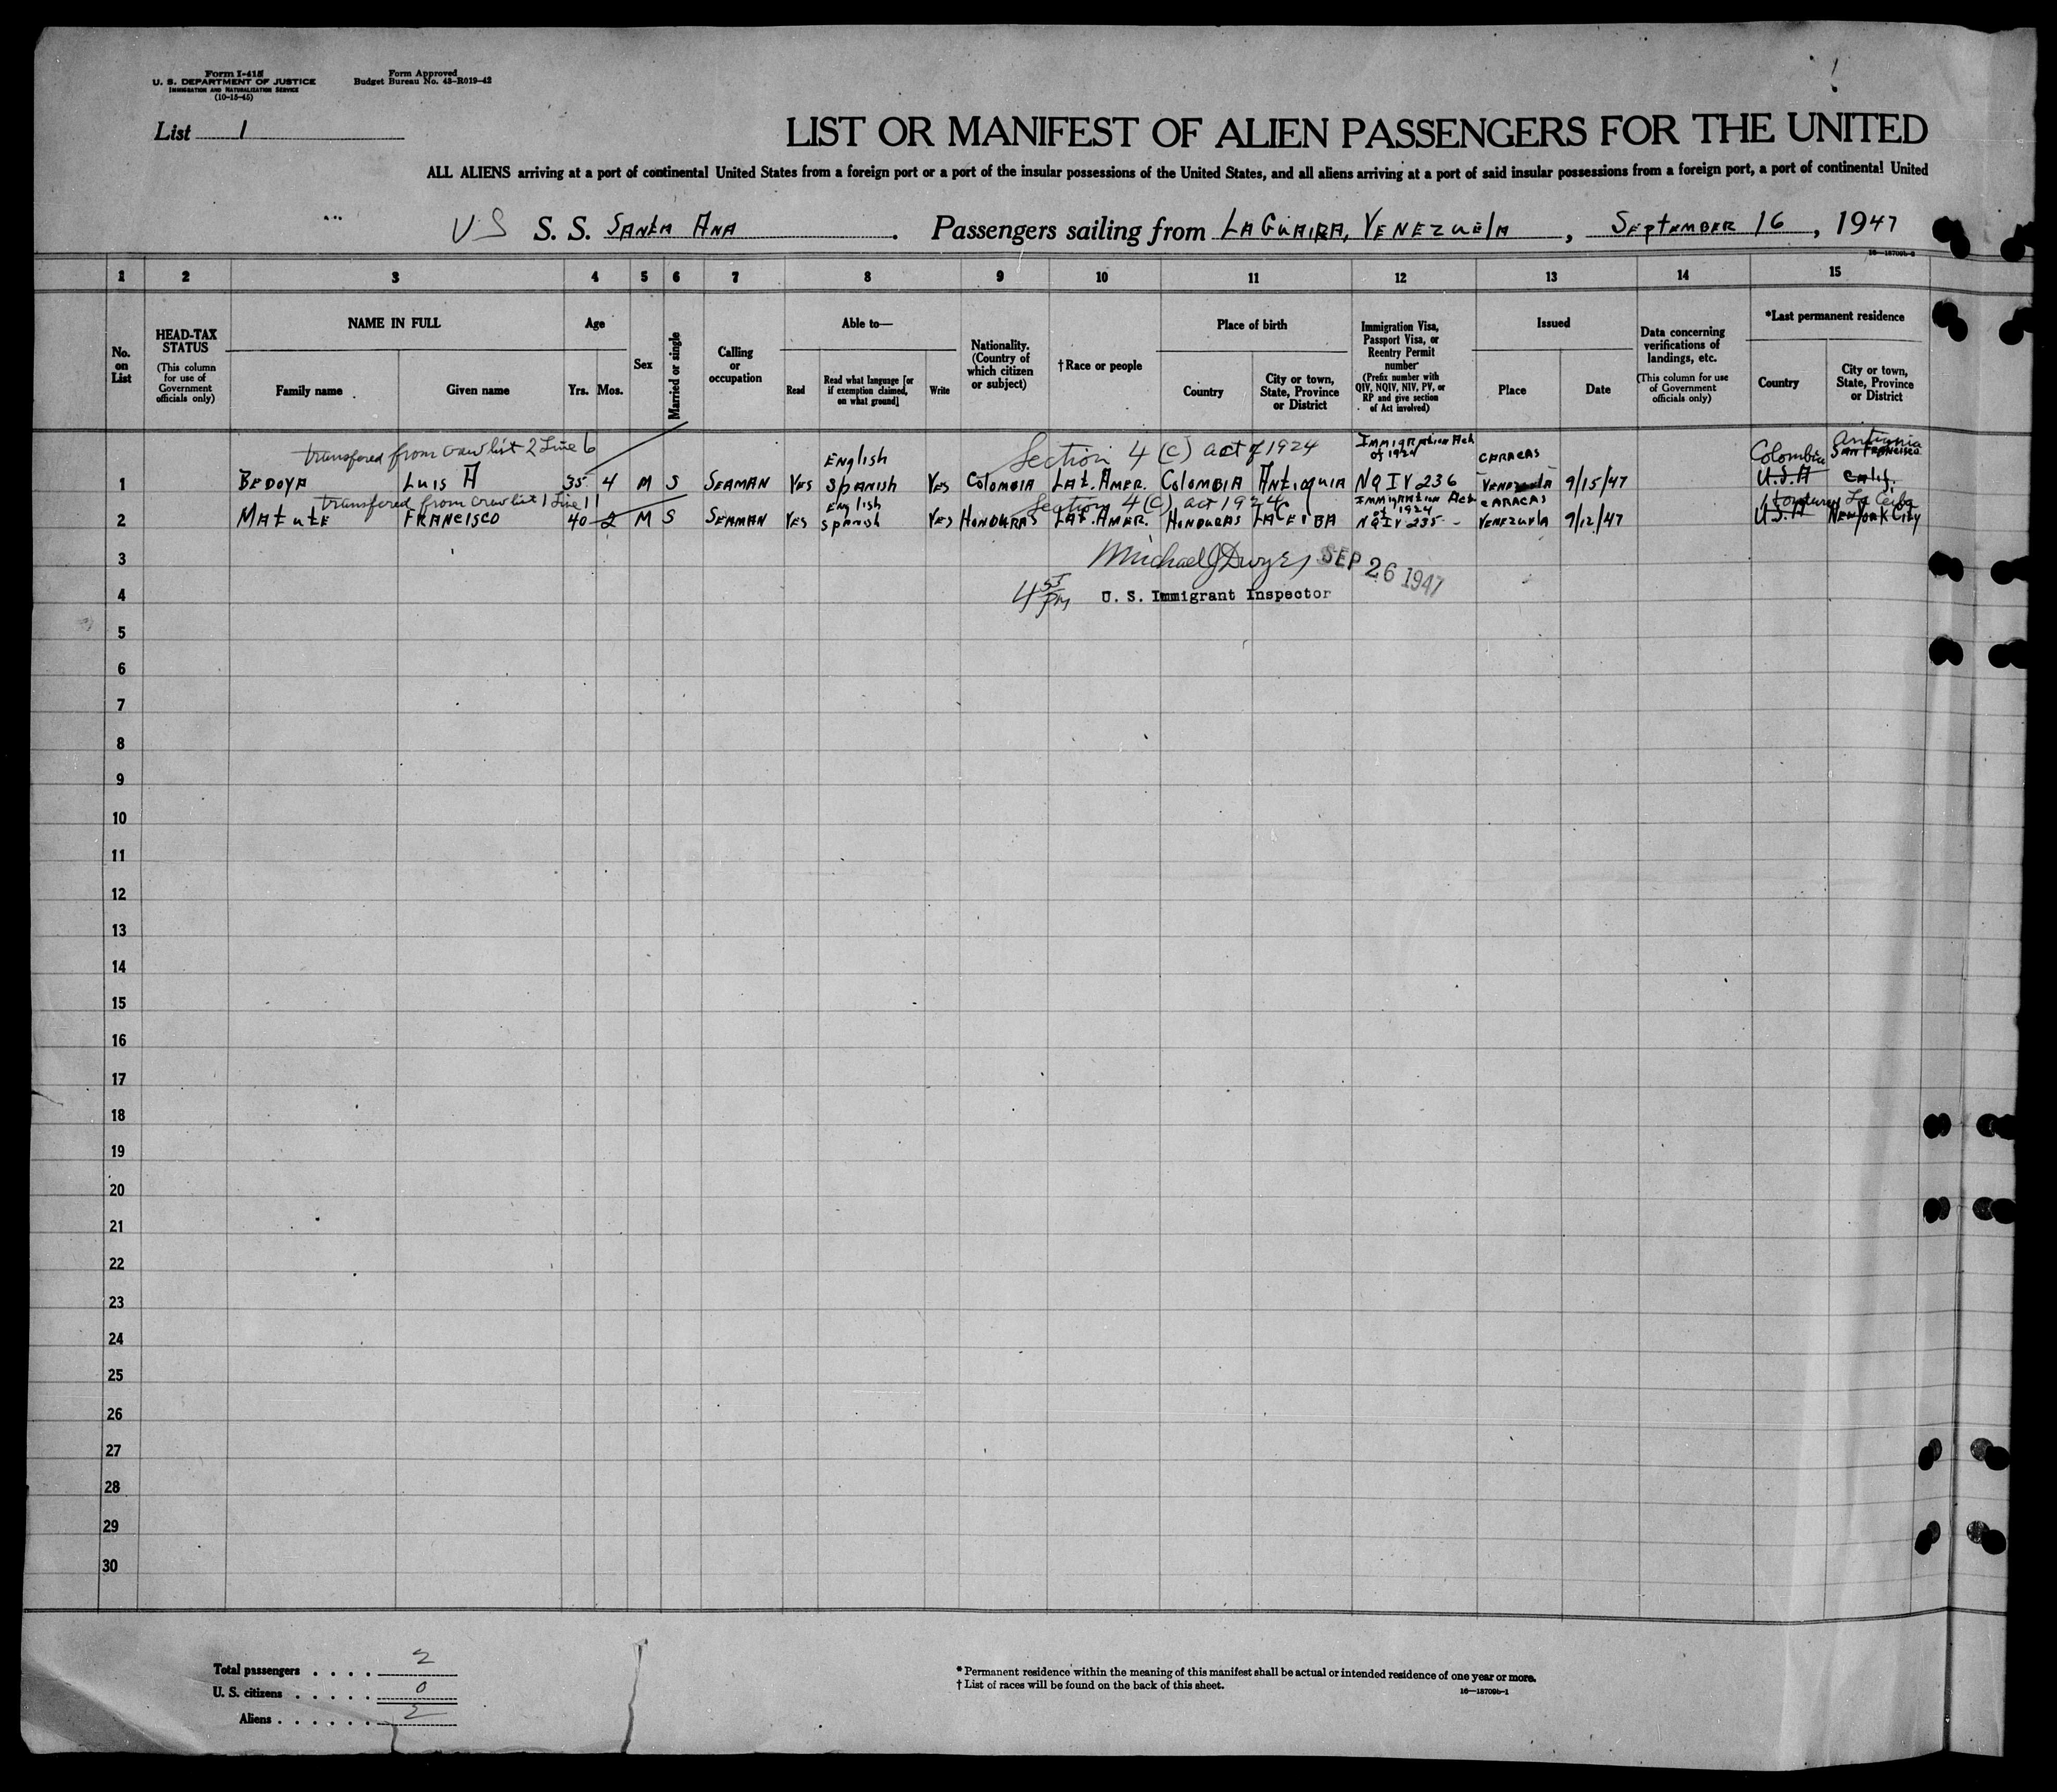 Form I-415
U. S. DEPARTMENT OF JUSTICE
IMMIGRATION AND NATURALIZATION SERVICE
(10-15-45)
Form Approved
Budget Bureau No. 43-R019-42
List 1
LIST OR MANIFEST OF ALIEN PASSENGERS FOR THE UNITED
ALL ALIENS arriving at a port of continental United States from a foreign port or a port of the insular possessions of the United States, and all aliens arriving at a port of said insular possessions from a foreign port, a port of continental United
US S. S. Santa Ana. Passengers sailing from LaGuaira, Venezuela, September 16, 1947
1 2 3 4 5 6 7 8 9 10 11 12 13 14 15
No. on List
HEAD-TAX STATUS
(This column for use of Government officials only)
NAME IN FULL
Family name
Given name
Age
Yrs. Mos.
Sex
Married or single
Calling or occupation
Able to—
Read
Read what language [or if exemption claimed, on what ground]
Write
Nationality. (Country of which citizen or subject)
†Race or people
Place of birth
Country
City or town, State, Province or District
Immigration Visa, Passport Visa, or Reentry Permit number
(Prefix number with QIV, NQIV, NIV, PV, or RP and give section of Act involved)
Issued
Place
Date
Data concerning verifications of landings, etc.
(This column for use of Government officials only)
*Last permanent residence
Country
City or town, State, Province or District
transfered from crew list 2 Line 6
Section 4 (C) act of 1924
1 Bedoya Luis A 35 4 M S Seaman Yes English Spanish Yes Colombia Lat. Amer. Colombia Antioquia Immigration Act of 1924 NQIV 236 Caracas Venezuela 9/15/47 Colombia U.S.A San Francisco Calif.
transfered from crew list 1 Line 11
Section 4 (C) act 1924
2 Matute Francisco 40 2 M S Seaman Yes English Spanish Yes Honduras Lat. Amer. Honduras LaCeiba Immigration Act of 1924 NQIV 235 Caracas Venezuela 9/12/47 Honduras La Ceiba U.S.A New York City
3
Michael J Dwyer SEP 26 1947
4
4 55 PM U. S. Immigrant Inspector
5
6
7
8
9
10
11
12
13
14
15
16
17
18
19
20
21
22
23
24
25
26
27
28
29
30
Total passengers . . . . 2
U. S. citizens . . . . . 0
Aliens . . . . . . 2
* Permanent residence within the meaning of this manifest shall be actual or intended residence of one year or more.
† List of races will be found on the back of this sheet.
16—18709b-1